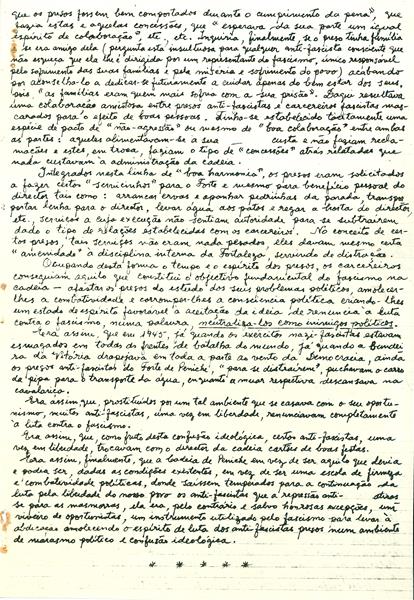 que os presos fossem bem comportados durante o cumprimento da pena", que
fazia estas e aquelas concessões, que "esperava da sua parte um igual
espírito de colaboração", etc., etc. Inquiria, finalmente, se o preso tinha família
e se era amigo dela (pergunta esta insultuosa para qualquer anti-fascista consciente que
não esqueça que ela lhe é dirigida por um representante do fascismo, único responsável
pelo sofrimento das suas famílias e pela miséria e sofrimento do povo) acabando
por aconselhá-lo a dedicar-se inteiramente a cuidar apenas do bem estar dos seus,
pois "as famílias eram quem mais sofria com a sua prisão". Daqui resultava
uma colaboração amistosa entre presos anti-fascistas e carcereiros fascistas mas-
carados para o efeito de boas pessoas. Tinha-se estabelecido tacitamente uma
espécie de pacto de "não-agressão" ou mesmo de "boa colaboração" entre ambas
as partes: aqueles alimentavam-se a sua custa e não faziam recla-
mações e estes em troca, faziam o tipo de "concessões" atrás relatadas que
nada custavam à administração da cadeia.
Integrados nesta linha de "boa harmonia", os presos eram solicitados
a fazer certos "servicinhos" para o Forte e mesmo para benefício pessoal do
director tais como: arrancar ervas e apanhar pedrinhas da parada, transpor-
portar lenha para o director, levar água aos patos e regar a horta do director
etc., serviços a cuja execução não sentiam autoridade para se subtraírem,
dado o tipo de relações estabelecidas com os carcereiros. No conceito de cer-
tos presos, tais serviços não eram nada pesados, eles davam mesmo certa
"amenidade" à disciplina interna da Fortaleza, servindo de distração.
Ocupando desta forma o tempo e o espírito dos presos, os carcereiros
conseguiam aquilo que constitui o objectivo fundamental do fascismo na
cadeia - afastar os presos do estudo dos seus problemas políticos, amolecer-
lhes a combatividade e corromper-lhes a consciência política criando-lhes
um estado de espírito favorável à aceitação da ideia de renúncia à luta
contra o fascismo, numa palavra, neutralizá-los como inimigos políticos.
Era assim, que em 1945, já quando os exércitos nazi-fascistas estavam
esmagados em todas as frentes de batalha do mundo, já quando a Bandei-
ra da Vitória drapejava em toda a parte ao vento da Democracia, ainda
os presos anti-fascistas do Forte de Peniche, "para se distraírem", puchavam o carro
da pipa para o transporte da água, enquanto o muar respectivo descansava na
cavalariça.
Era assim que, prostituídos por um tal ambiente que se casava com o seu oportu-
nismo, muitos anti-fascistas, uma vez em liberdade, renunciavam completamente
à luta contra o fascismo.
Era assim, que, como fruto desta confusão ideológica, certos anti-fascistas, uma
vez em liberdade, trocavam com o director da cadeia cartões de boas festas.
Era assim, finalmente, que a Cadeia de Peniche em vez de ser aquilo que devia
e podia ser, dadas as condições existentes, em vez de ser uma escola de firmeza
e combatividade políticas, donde saíssem temperados para a continuação da
luta pela liberdade do nosso povo os anti-fascistas que a repressão atiras-
se para as masmorras, ela era, pelo contrário e salvo honrosas excepções, um
viveiro de oportunistas, um instrumento utilizado pelo fascismo para levar à
abdicação amolecendo o espírito de luta dos anti-fascistas presos num ambiente
de marasmo político e confusão ideológica.
* * * * *